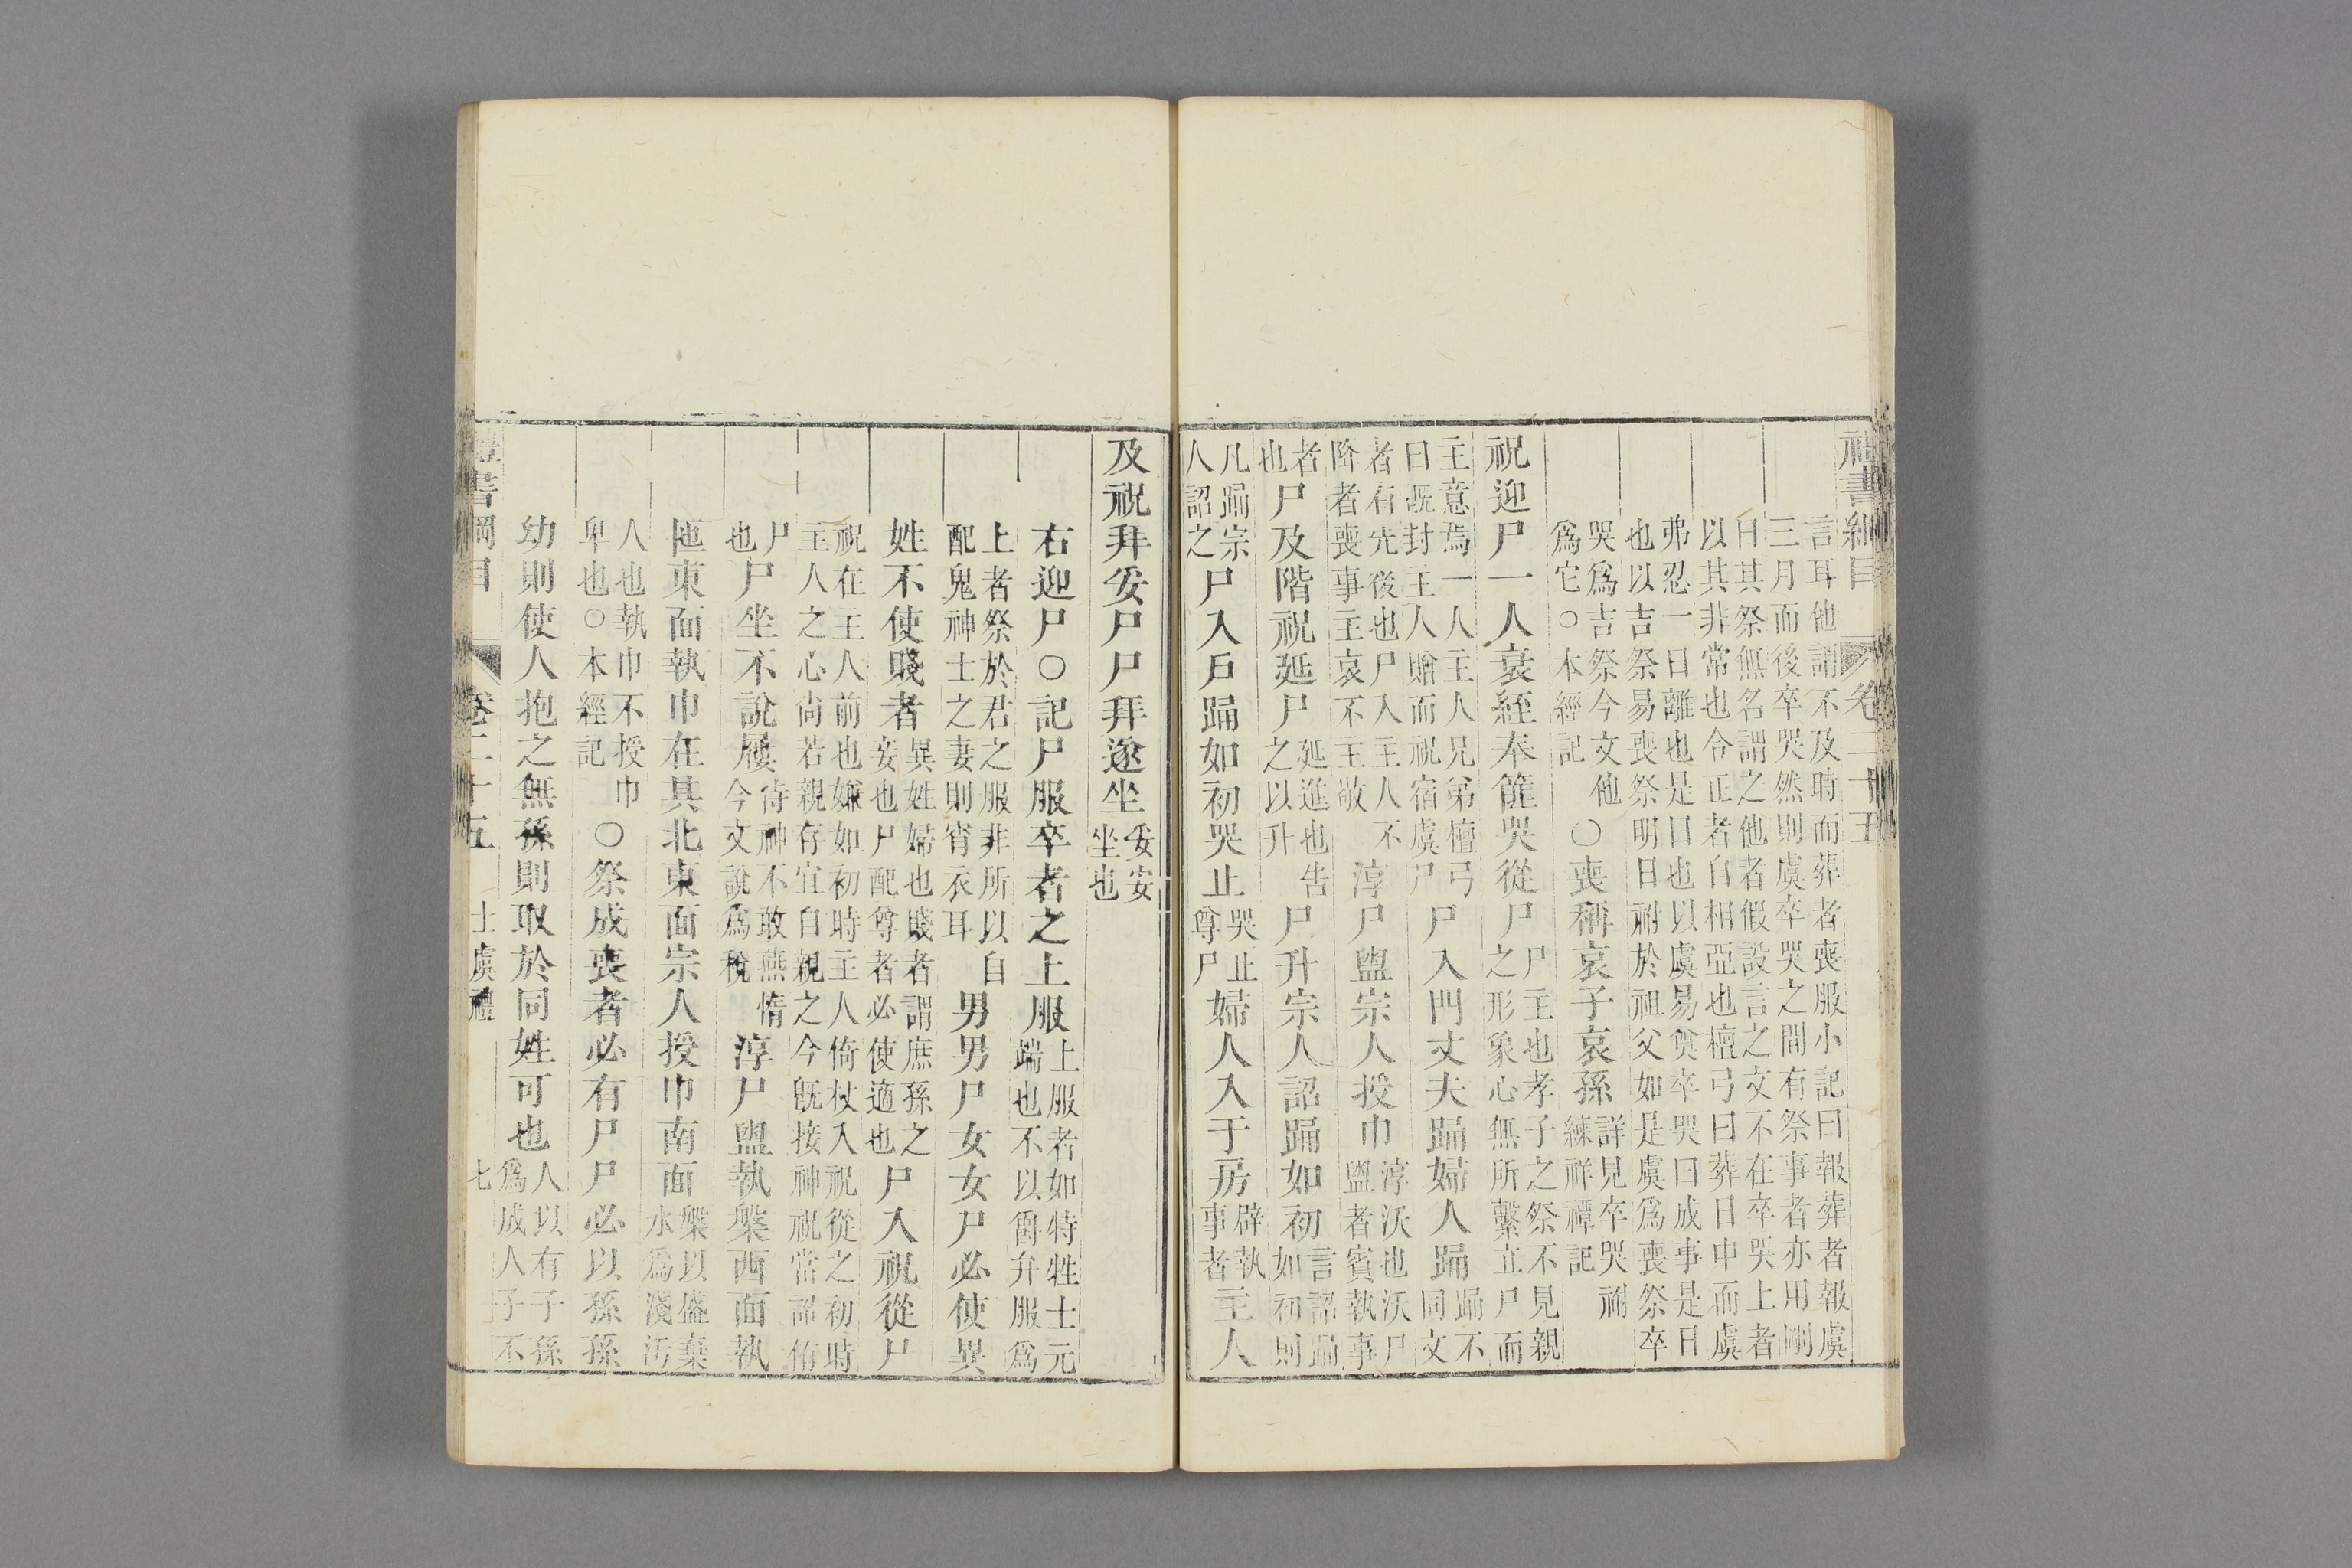 禮書綱目 卷二十五
言耳他謂不及時而葬者喪服小記曰報葬者報虞
三月而後卒哭然則虞卒哭之間有祭事者亦用剛
日其祭無名謂之他者假設言之文不在卒哭上者
以其非常也令正者自相亞也檀弓曰葬日中而虞
弗忍一日離也是日也以虞易奠卒哭曰成事是日
也以吉祭易喪祭明日祔於祖父如是虞爲喪祭卒
哭爲吉祭今文他爲它○本經記○喪稱哀子哀孫詳見卒哭祔練祥禫記
祝迎尸一人衰絰奉篚哭從尸尸主也孝子之祭不見親之形象心無所繫立尸而
主意焉一人主人兄弟檀弓曰既封主人贈而祝宿虞尸尸入門丈夫踊婦人踊踊不同文
者有先後也尸入主人不降者喪事主哀不主敬淳尸盥宗人授巾淳沃也沃尸盥者賓執事
者也尸及階祝延尸延進也告之以升尸升宗人詔踊如初言詔踊如初則
凡踊宗人詔之尸入戶踊如初哭止哭止尊尸婦人入于房辟執事者主人
及祝拜妥尸尸拜遂坐妥安坐也
右迎尸○記尸服卒者之上服上服者如特牲士元端也不以爵弁服爲
上者祭於君之服非所以自配鬼神士之妻則宵衣耳男男尸女女尸必使異
姓不使賤者異姓婦也賤者謂庶孫之妾也尸配尊者必使適也尸入祝從尸
祝在主人前也嫌如初時主人倚杖入祝從之初時
主人之心尚若親存宜自親之今既接神祝當詔侑
尸也尸坐不說屨侍神不敢燕惰今文說爲稅淳尸盥執槃西面執
匜東面執巾在其北東面宗人授巾南面槃以盛棄水爲淺汚
人也執巾不授巾卑也○本經記○祭成喪者必有尸尸必以孫孫
幼則使人抱之無孫則取於同姓可也人以有子孫爲成人子不
禮書綱目 卷二十五 士虞禮 七